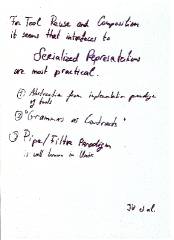 For Tool Reuse and Composition
it seems that interfaces to
Serialized Representations
are most practical.
① Abstraction from implementation paradigm
of tools
② "Grammars as Contracts"
③ Pipe/Filter Paradigm
is well known in Unix
JH et al.